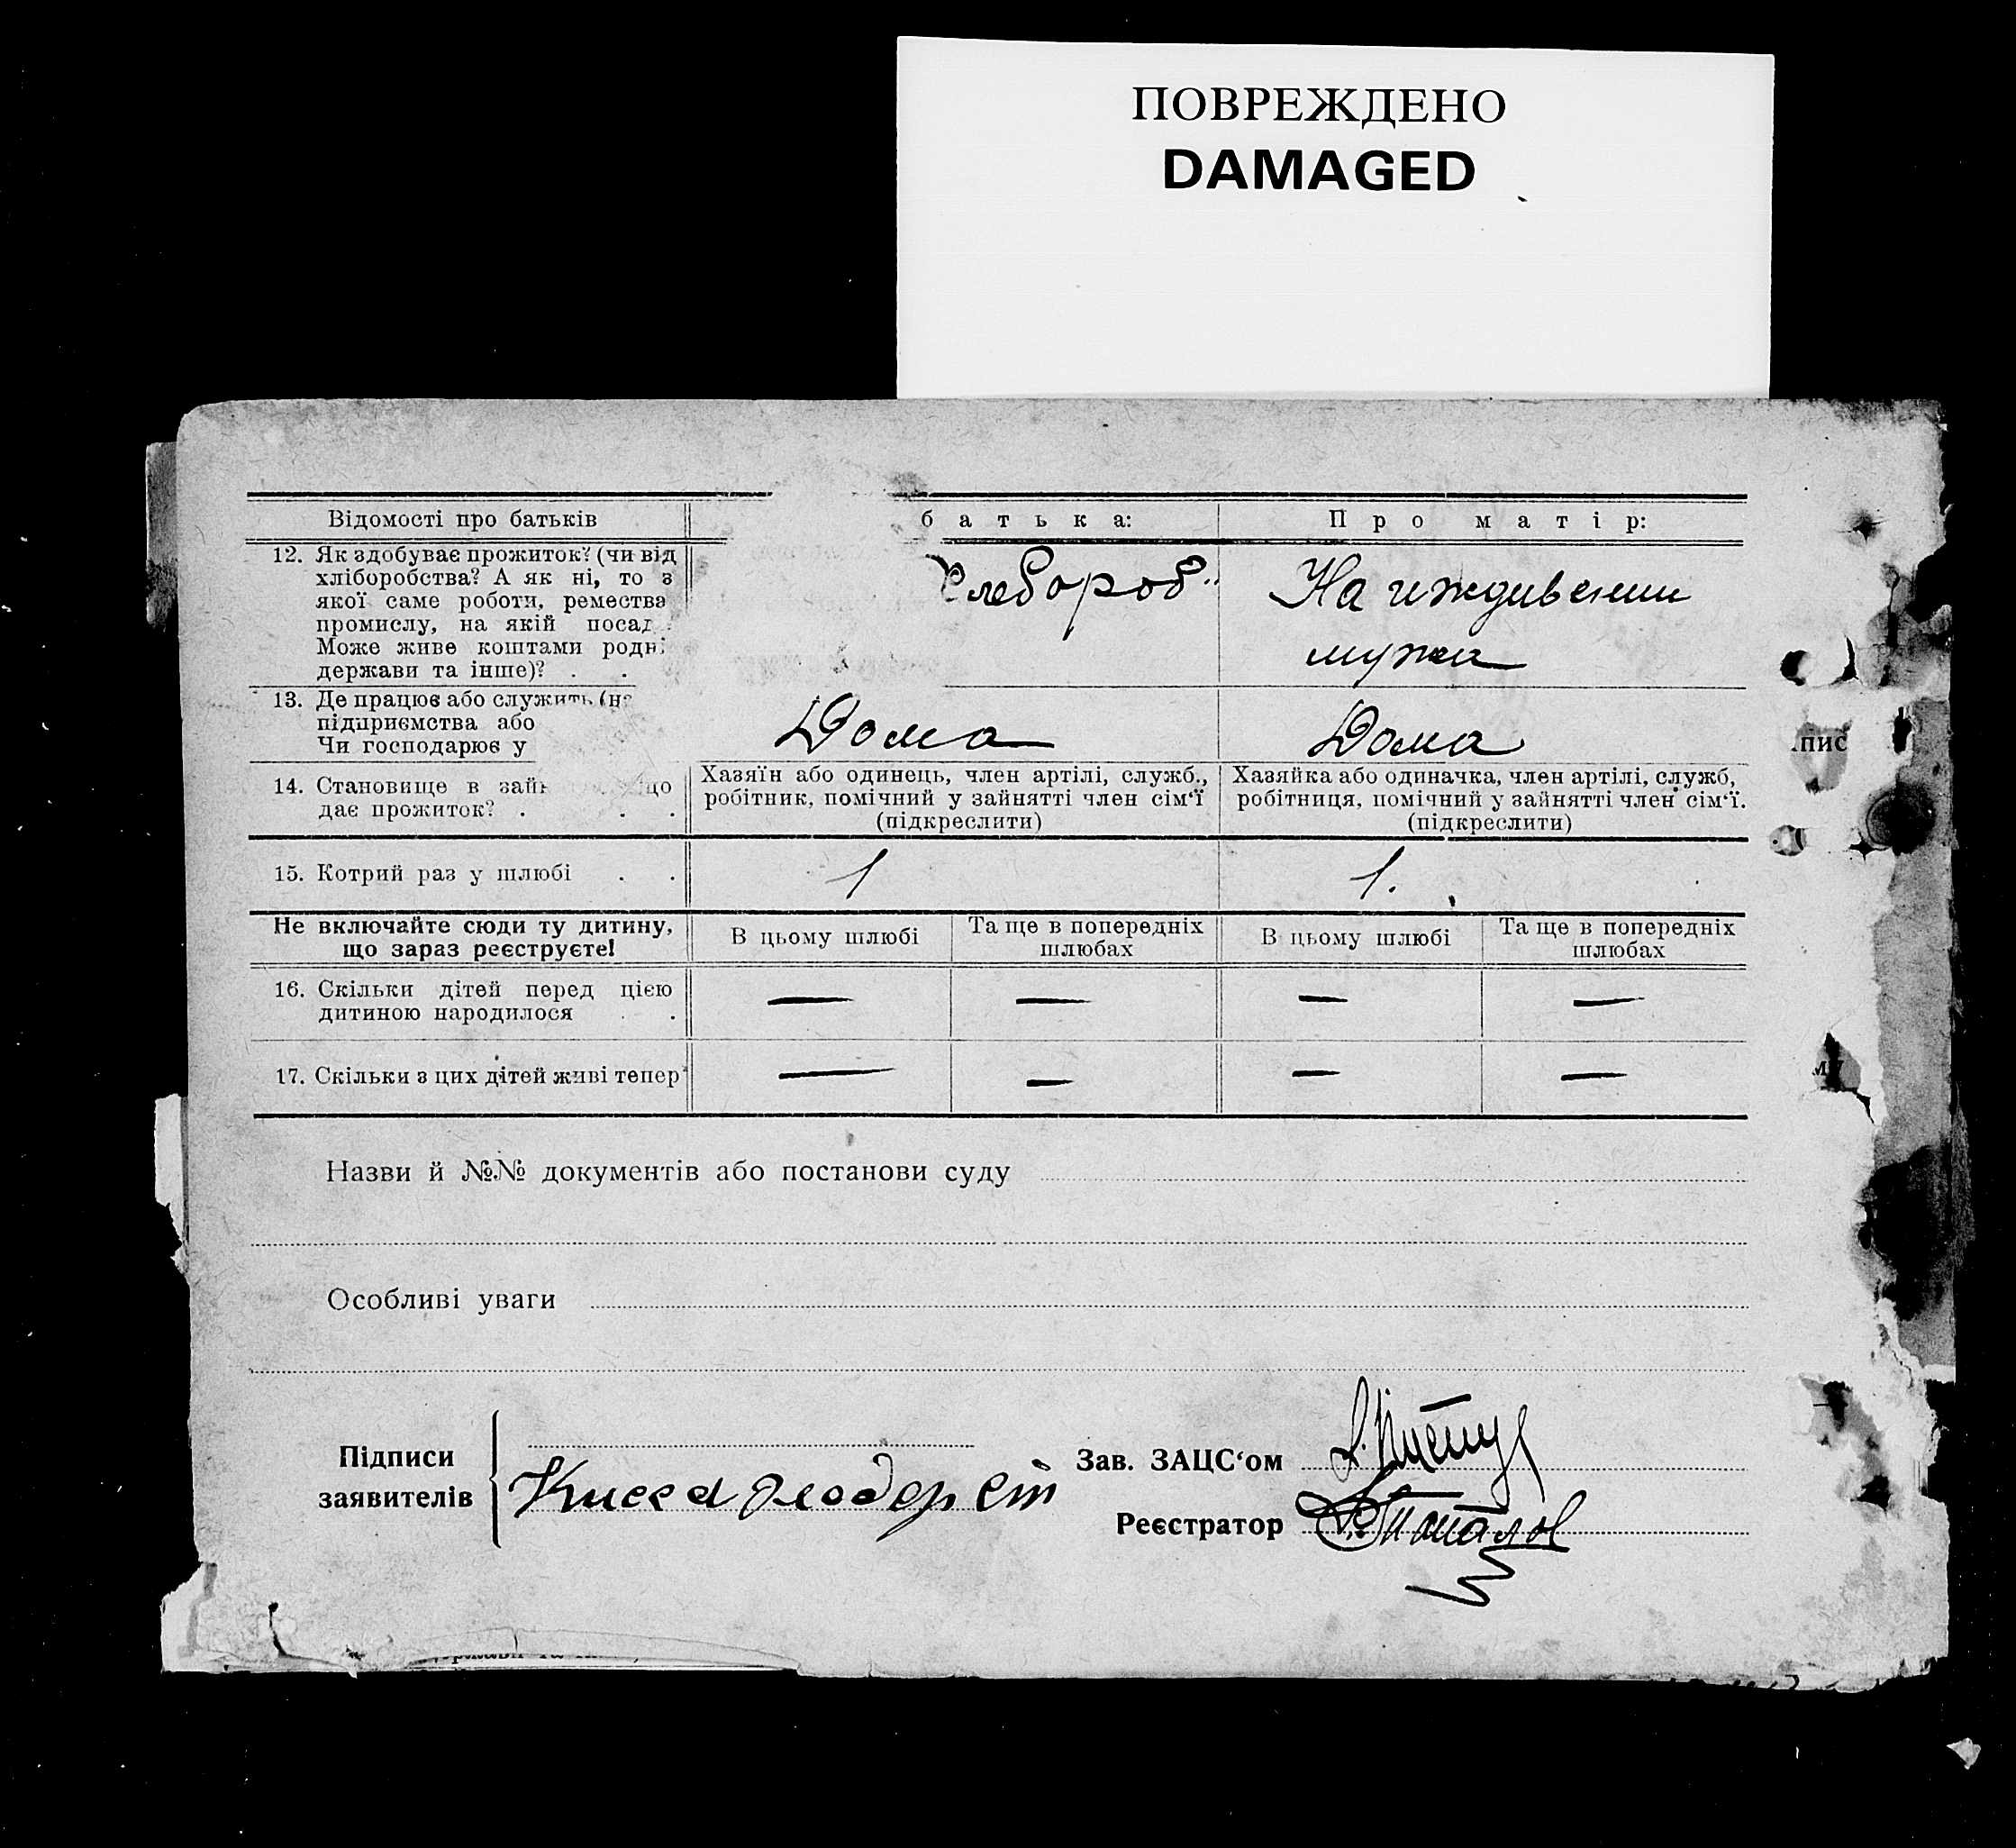 ПОВРЕЖДЕНО
DAMAGED
Відомості про батьків
батька:
Про матір:
12. Як здобуває прожиток? (чи від
хліборобства? А як ні, то з
якої саме роботи, ремества
промислу, на якій посад
Може живе коштами родні
держави та інше)? . .
Хлебороб
На иждивении
мужа
13. Де працює або служить (н
підприємства або
Чи господарює у
Дома
Дома
14. Становище в зайн що
дає прожиток? . . .
Хазяїн або одинець, член артілі, служб.,
робітник, помічний у зайнятті член сім‘ї
(підкреслити)
Хазяйка або одиначка, член артілі, служб,
робітниця, помічний у зайнятті член сім‘ї.
(підкреслити)
15. Котрий раз у шлюбі . .
1
1.
Не включайте сюди ту дитину,
що зараз реєструєте!
В цьому шлюбі
Та ще в попередніх
шлюбах
В цьому шлюбі
Та ще в попередніх
шлюбах
16. Скільки дітей перед цією
дитиною народилося . .
— — — —
17. Скільки з цих дітей живі тепер
— — — —
Назви й №№ документів або постанови суду
Особливі уваги
Підписи
заявителів
Зав. ЗАЦС‘ом
Реєстратор
пис